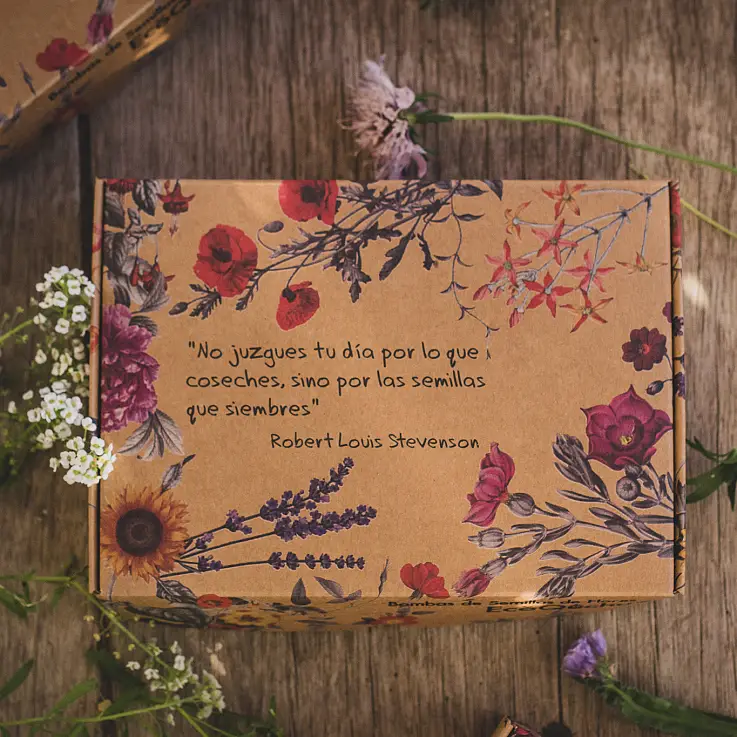 Bombas de Semillas
"No juzgues tu día por lo que
coseches, sino por las semillas
que siembres"
Robert Louis Stevenson
Bombas de Semillas de Flores